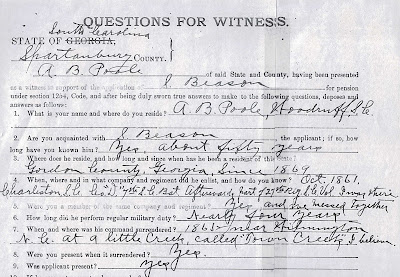 QUESTIONS FOR WITNESS.
South Carolina
STATE OF GEORGIA,
Spartanburg COUNTY.
A B Poole of said State and County, having been presented
as a witness in support of the application of I Beason for pension
under section 1254, Code, and after being duly sworn true answers to make to the following questions, deposes and
answers as follows:
1. What is your name and where do you reside? A. B. Poole, Woodruff S. C
2. Are you acquainted with I Beason the applicant; if so, how
long have you known him? Yes, about fifty years
3. Where does he reside, and how long and since when has he been a resident of this State?
Gordon County, Georgia, Since 1869
4. When, where and what company and regiment did he enlist, and how do you know? Oct, 1861.
Charleston S. C. Co. 7th S. C. Bat. Afterward, Part of 27th Reg S. C. Vol. I was there
5. Were you a member of the same company and regiment? Yes and we messed together
6. How long did he perform regular military duty? Nearly four years
7. When and where was his command surrendered? 1865 near Wilmington
N. C. at a little Creek, called Town Creek, I believe.
8. Were you present when it surrendered? Yes.
9. Was applicant present? Yes